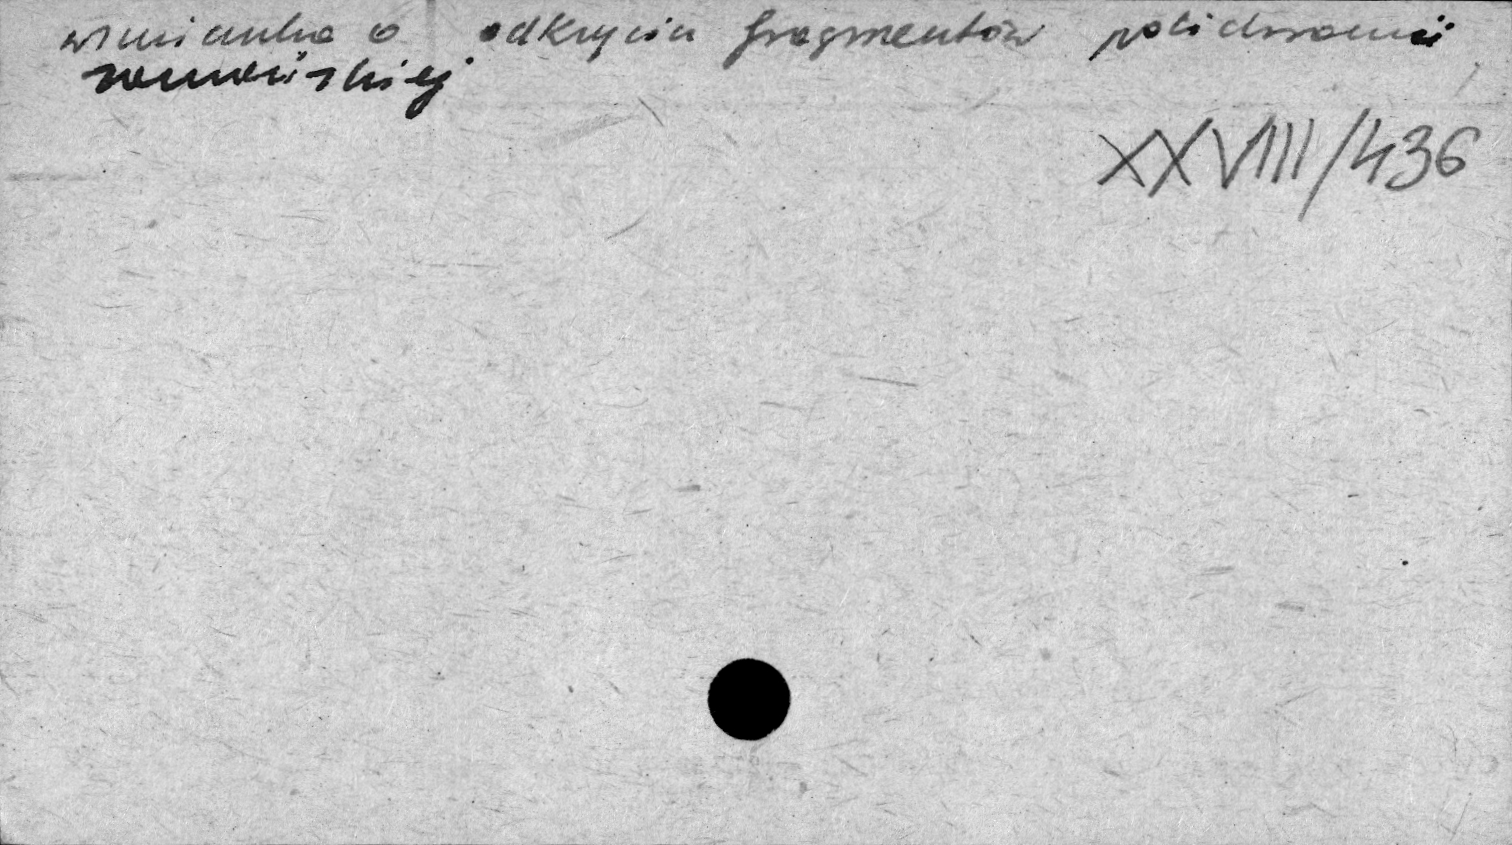 wzmianka o odkryciu fragmentów polichromii
romańskiej
XXVIII/436